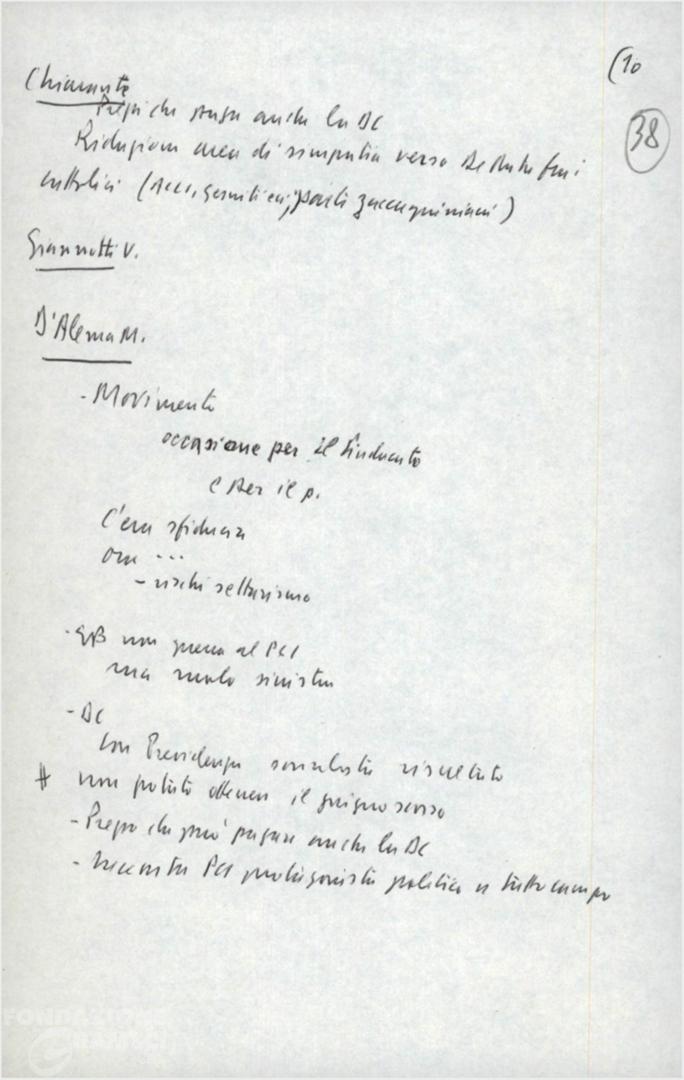 (10
38
Chiarante
Prezzi che paga anche la DC
Riduzione area di simpatia verso De Mita fra i
cattolici (Acli, gesuiti ecc, zaccagniniani)
Giannotti V.
D'Alema M.
- Movimento
occasione per il sindacato
e per il p.
C'era sfiducia
ora ...
- rischi settarismo
- non guerra al PCI
ma ruolo sinistra
- DC
con Presidenza socialista risultato
# non potuto ottenere il giugno scorso
- Prezzo che può pagare anche la DC
- Necessità PCI protagonista politica a tutto campo
FONDAZIONE
GRAMSCI